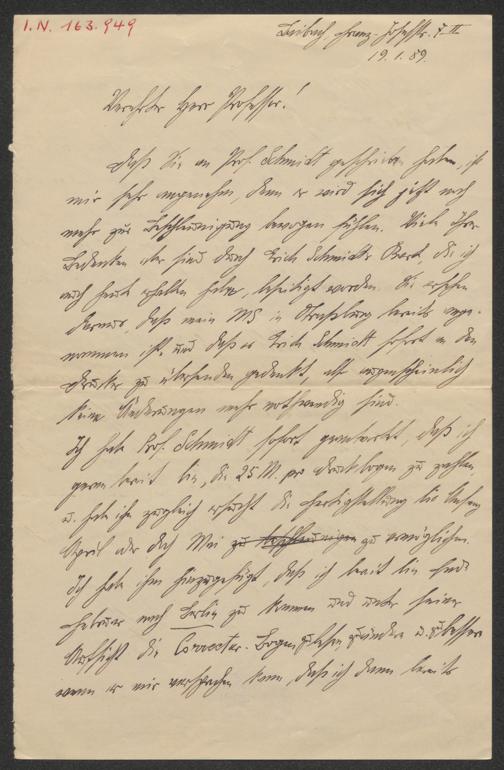 I.N. 163.949
Laibach, Franz-Josefstr. 7. II
19.1.89.
Verehrter Herr Professor!
Daß Sie an Prof. Schmidt geschrieben haben, ist
mir sehr angenehm, denn er wird sich jetzt noch
mehr zur Beschleunigung bewogen fühlen. Viele Ihrer
Bedenken aber sind durch Erich Schmidts Karte, die ich
auch heute erhalten habe, beseitigt worden. Sie ersehen
daraus, daß mein MS in Straßburg bereits ange-
nommen ist, und daß es Erich Schmidt sofort an den
Drucker zu übersenden gedenkt, also augenscheinlich
keine Änderungen mehr nothwendig sind.
Ich habe Prof. Schmidt sofort geantwortet, daß ich
gern bereit bin, die 25 M. pro Druckbogen zu zahlen
u. habe ihn zugleich ersucht die Fertigstellung bis Anfang
April oder doch Mai zu beschleunigen zu ermöglichen.
Ich habe ihm hinzugefügt, daß ich bereit bin Ende
Februar nach Berlin zu kommen und unter seiner
Aufsicht die Correctur-Bogen zu lesen u. zu bessern
wenn er mir versprechen kann, daß ich dann bereits